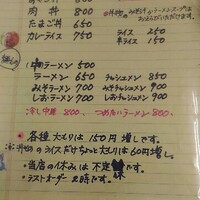 丼 800
たまご丼 650
カレーライス 750
ライス 250
半ライス 150
ラーメン 500
ラーメン 650
チャシューメン 850
みそラーメン 700
みそチャシューメン 900
しおラーメン 700
しおチャシューメン 900
冷し中華 800、つめたいラーメン 800.
各種 大もりは 150円 増しです。
のライスだけちょっと大もりは 60円増し。
・当店の休みは 不定休です。
・ラストオーダー 8時です。